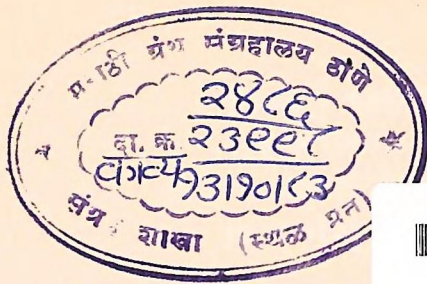 मराठी ग्रंथ संग्रहालय ठाणे
२४८६
दा. क्र. २३९९८
१३।१०।८३
शाखा (स्थळ प्रत)